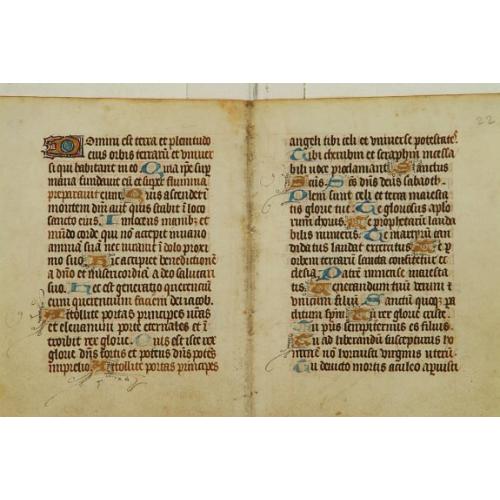 Domini est terra et plenitudo
eius orbis terraru et univer
si qui habitant in eo Quia ipse sup
maria fundavit eu et super flumina
preparavit eum Quis ascendet i
montem dni aut quis stabit i loco
sancto eius Innocens manibz et
mudo corde qui no accepit i vano
animā suā nec iuravit i dolo proxi
mo suo Hic accipiet benedictione
a dno et misericordiā a deo salutari
suo Hec est generatio querenciu
eum querencium faciem dei iacob
Attollite portas principes vras
et elevamini porte eternales et i
troibit rex glorie Quis est iste rex
glorie dns fortis et potens dns potes
in prelio Attollite portas principes
22
angeli tibi celi et universe potestates
Tibi cherubin et seraphin incessa
bili voce proclamant Sanctus
Scus Scs dns deus sabaoth
Pleni sunt celi et terra maiesta
tis glorie tue Te gloriosus aplo
rum chorus Te prophetaru lauda
bilis numerus Te martyru can
didatus laudat exercitus Te p
orbem terraru sancta confitetur ec
clesia Patre inmense maiesta
tis Venerandum tuu verum et
unicum filiu Sanctu quoqz pa
clitum spm Tu rex glorie criste
Tu pris sempiternus es filius
Tu ad liberandu suscepturus ho
mine no horruisti virginis uteru
Tu devicto mortis aculeo apuisti